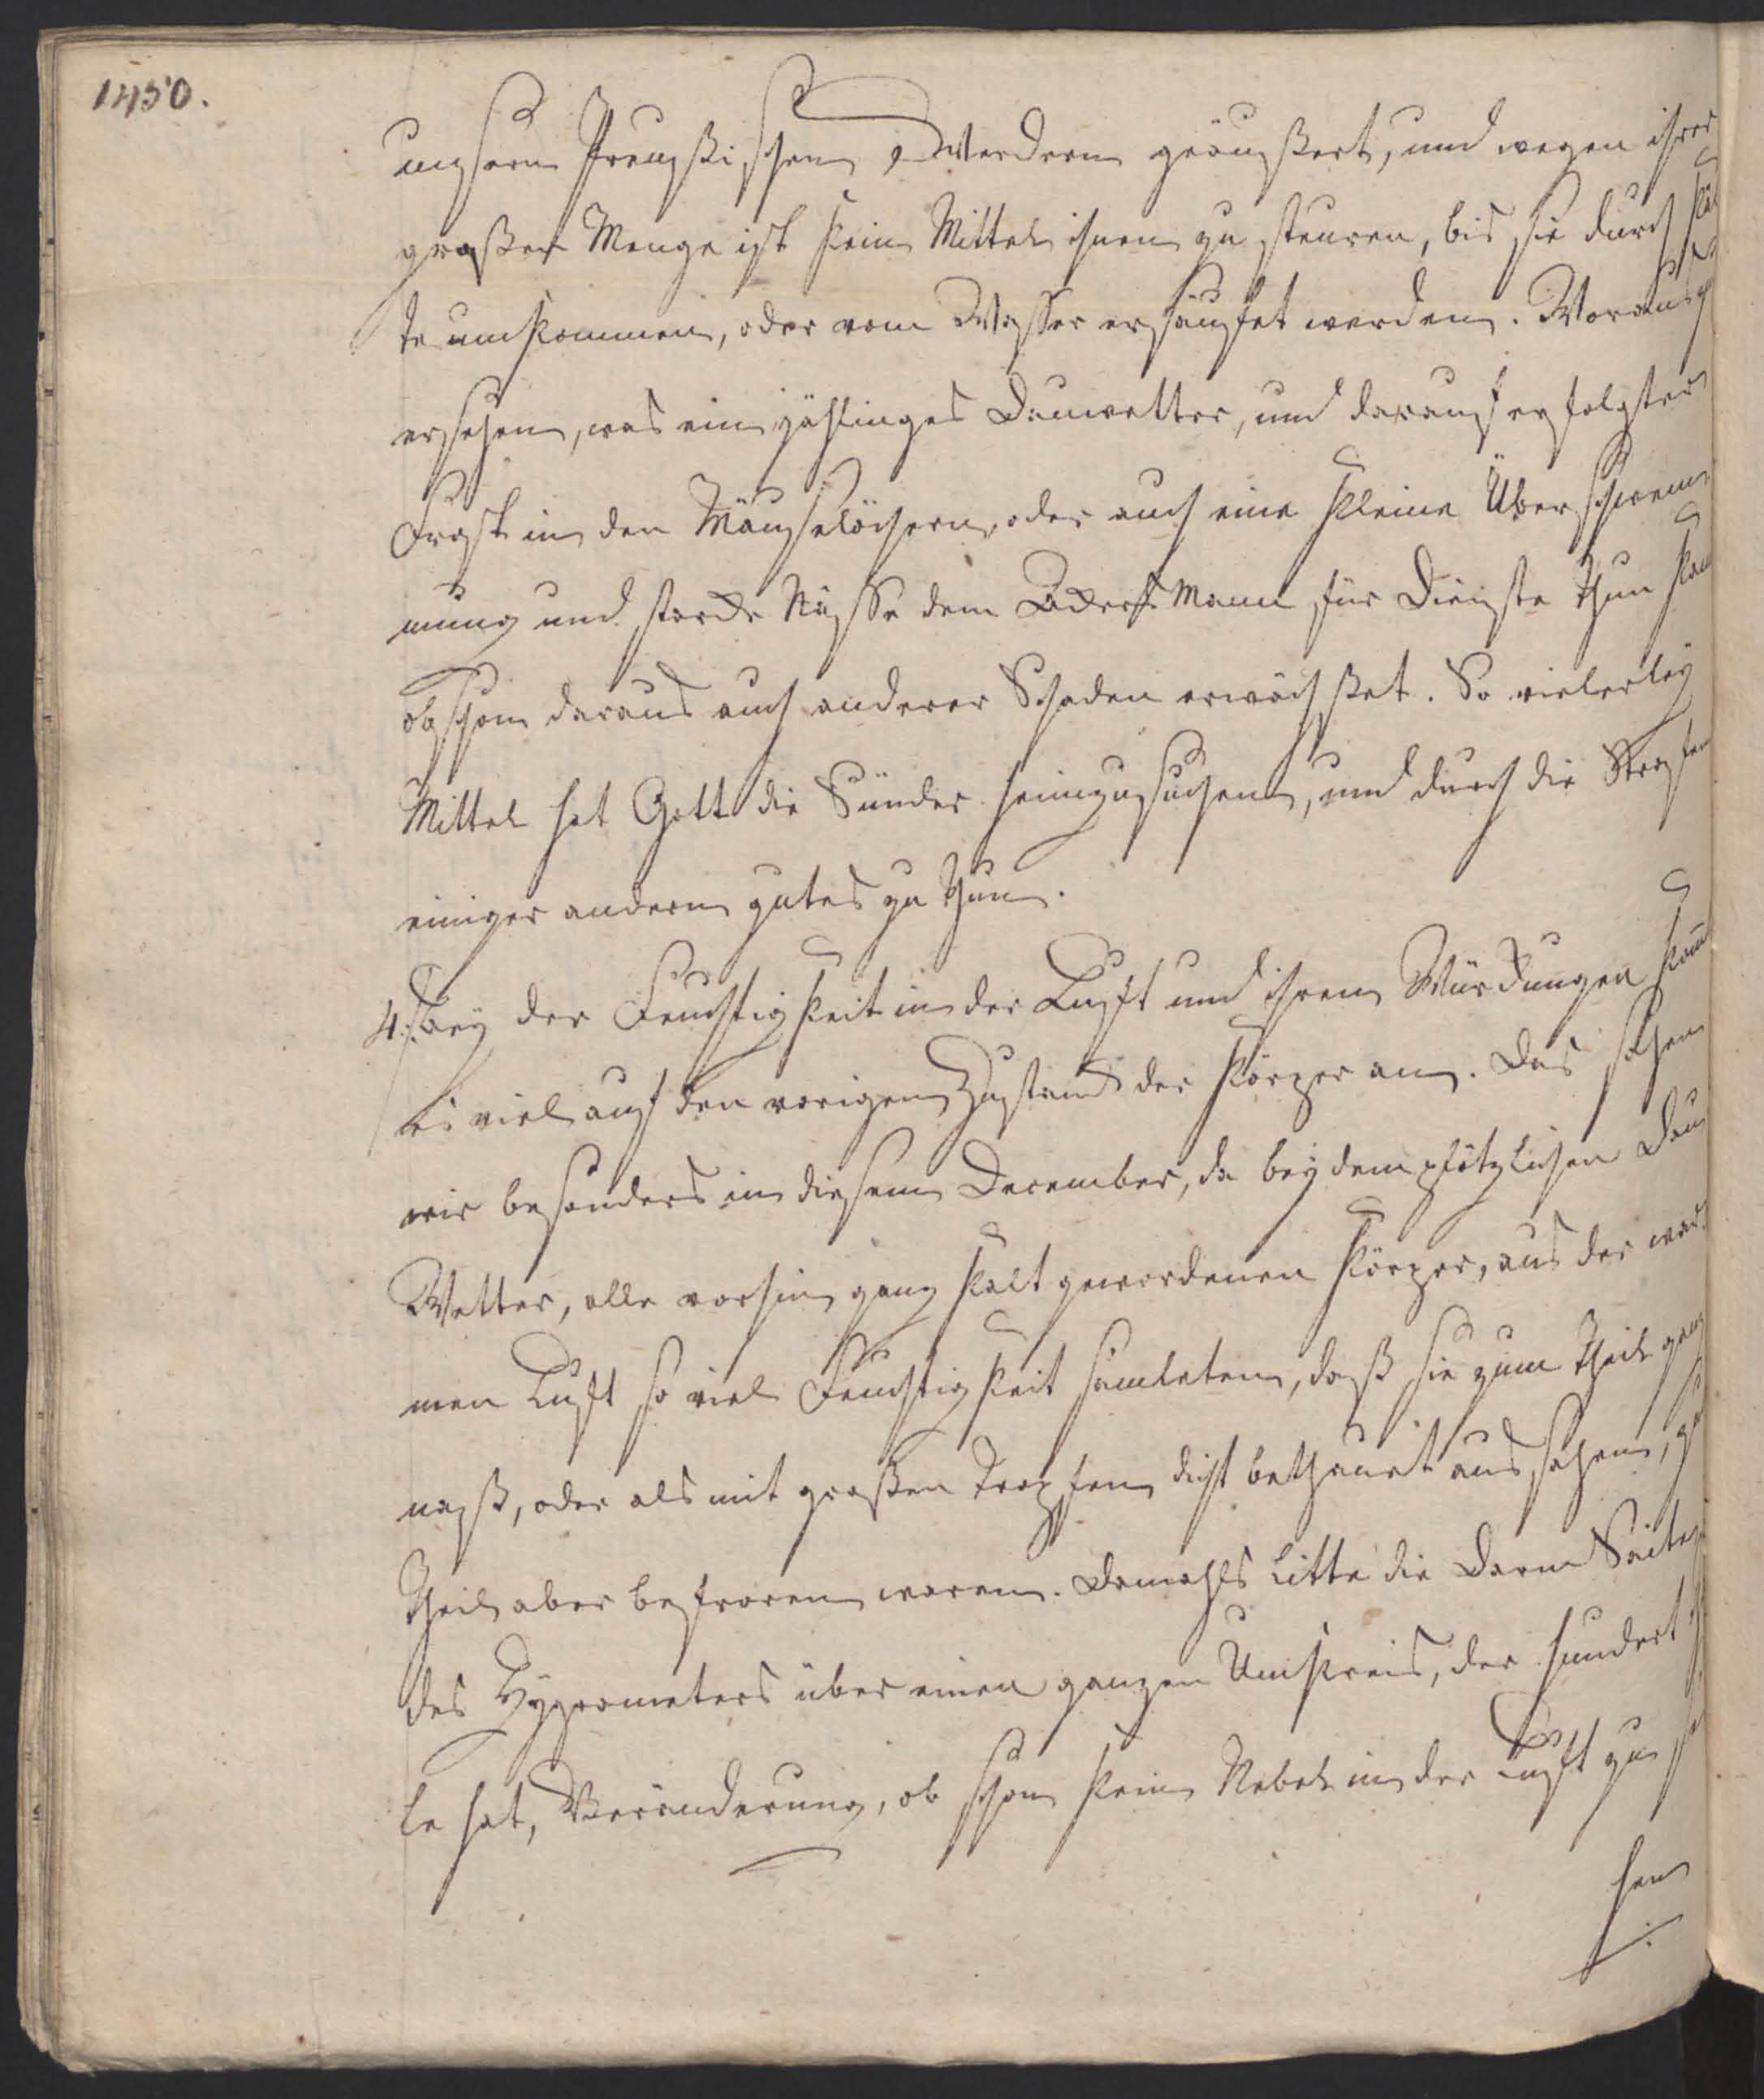 1450.
unsern Preußischen Werdern geäußert, und wegen ihrer
großen Menge ist kein Mittel ihnen zu steuren, bis sie durch Käl-
te umkommen, oder vom Wasser ersäufet werden. Woraus zu
ersehen, was ein jählinges Dauwetter, und darauf erfolgter
Frost in den Mäuselöchern, oder auch eine kleine Überschwem-
mung und starcke Nässe dem Ackersmann für Dienste thun kan
obschon daraus auch anderer Schaden erwächßet. So vielerley
Mittel hat Gott die Sünder heimzusuchen, und durch die Strafen
einiger andern gutes zu thun.
4. Bey der Feuchtigkeit in der Luft und ihren Würckungen kom̄t
es viel auf den vorigen Zustand der Körper an. Das sahen
wir besonders in diesem December, da bey dem plötzlichen Dau-
Wetter, alle vorhin ganz kalt gewordenen Körper, aus der war-
men Luft so viel Feuchtigkeit samleten, daß sie zum Theil ganz
naß, oder als mit großen Tropfen dicht bethauet aussahen,
Theil aber befroren waren. Damahls litte die Darm Saite
des Hygrometers über einen ganzen Umkreis, der hundert
le hat, Veränderung, ob schon kein Nebel in der Luft zu se-
hen